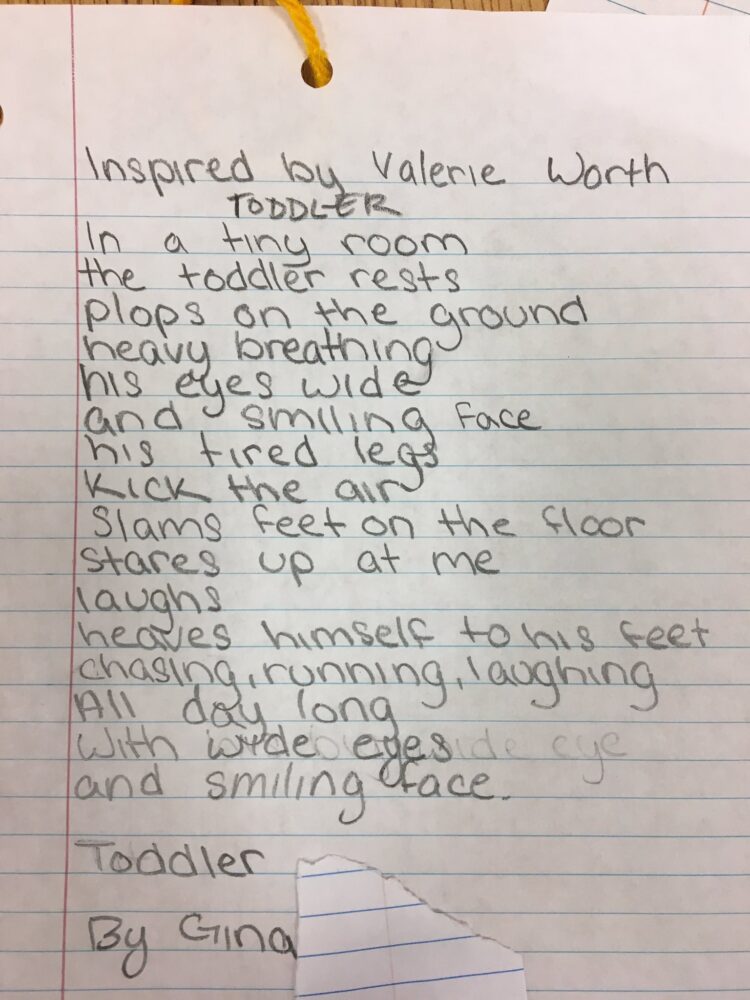 Inspired by Valerie Worth
TODDLER
In a tiny room
the toddler rests
plops on the ground
heavy breathing
his eyes wide
and smiling face
his tired legs
Kick the air
Slams feet on the floor
stares up at me
laughs
heaves himself to his feet
chasing, running, laughing
All day long
With wide eyes
and smiling face.
Toddler
By Gina